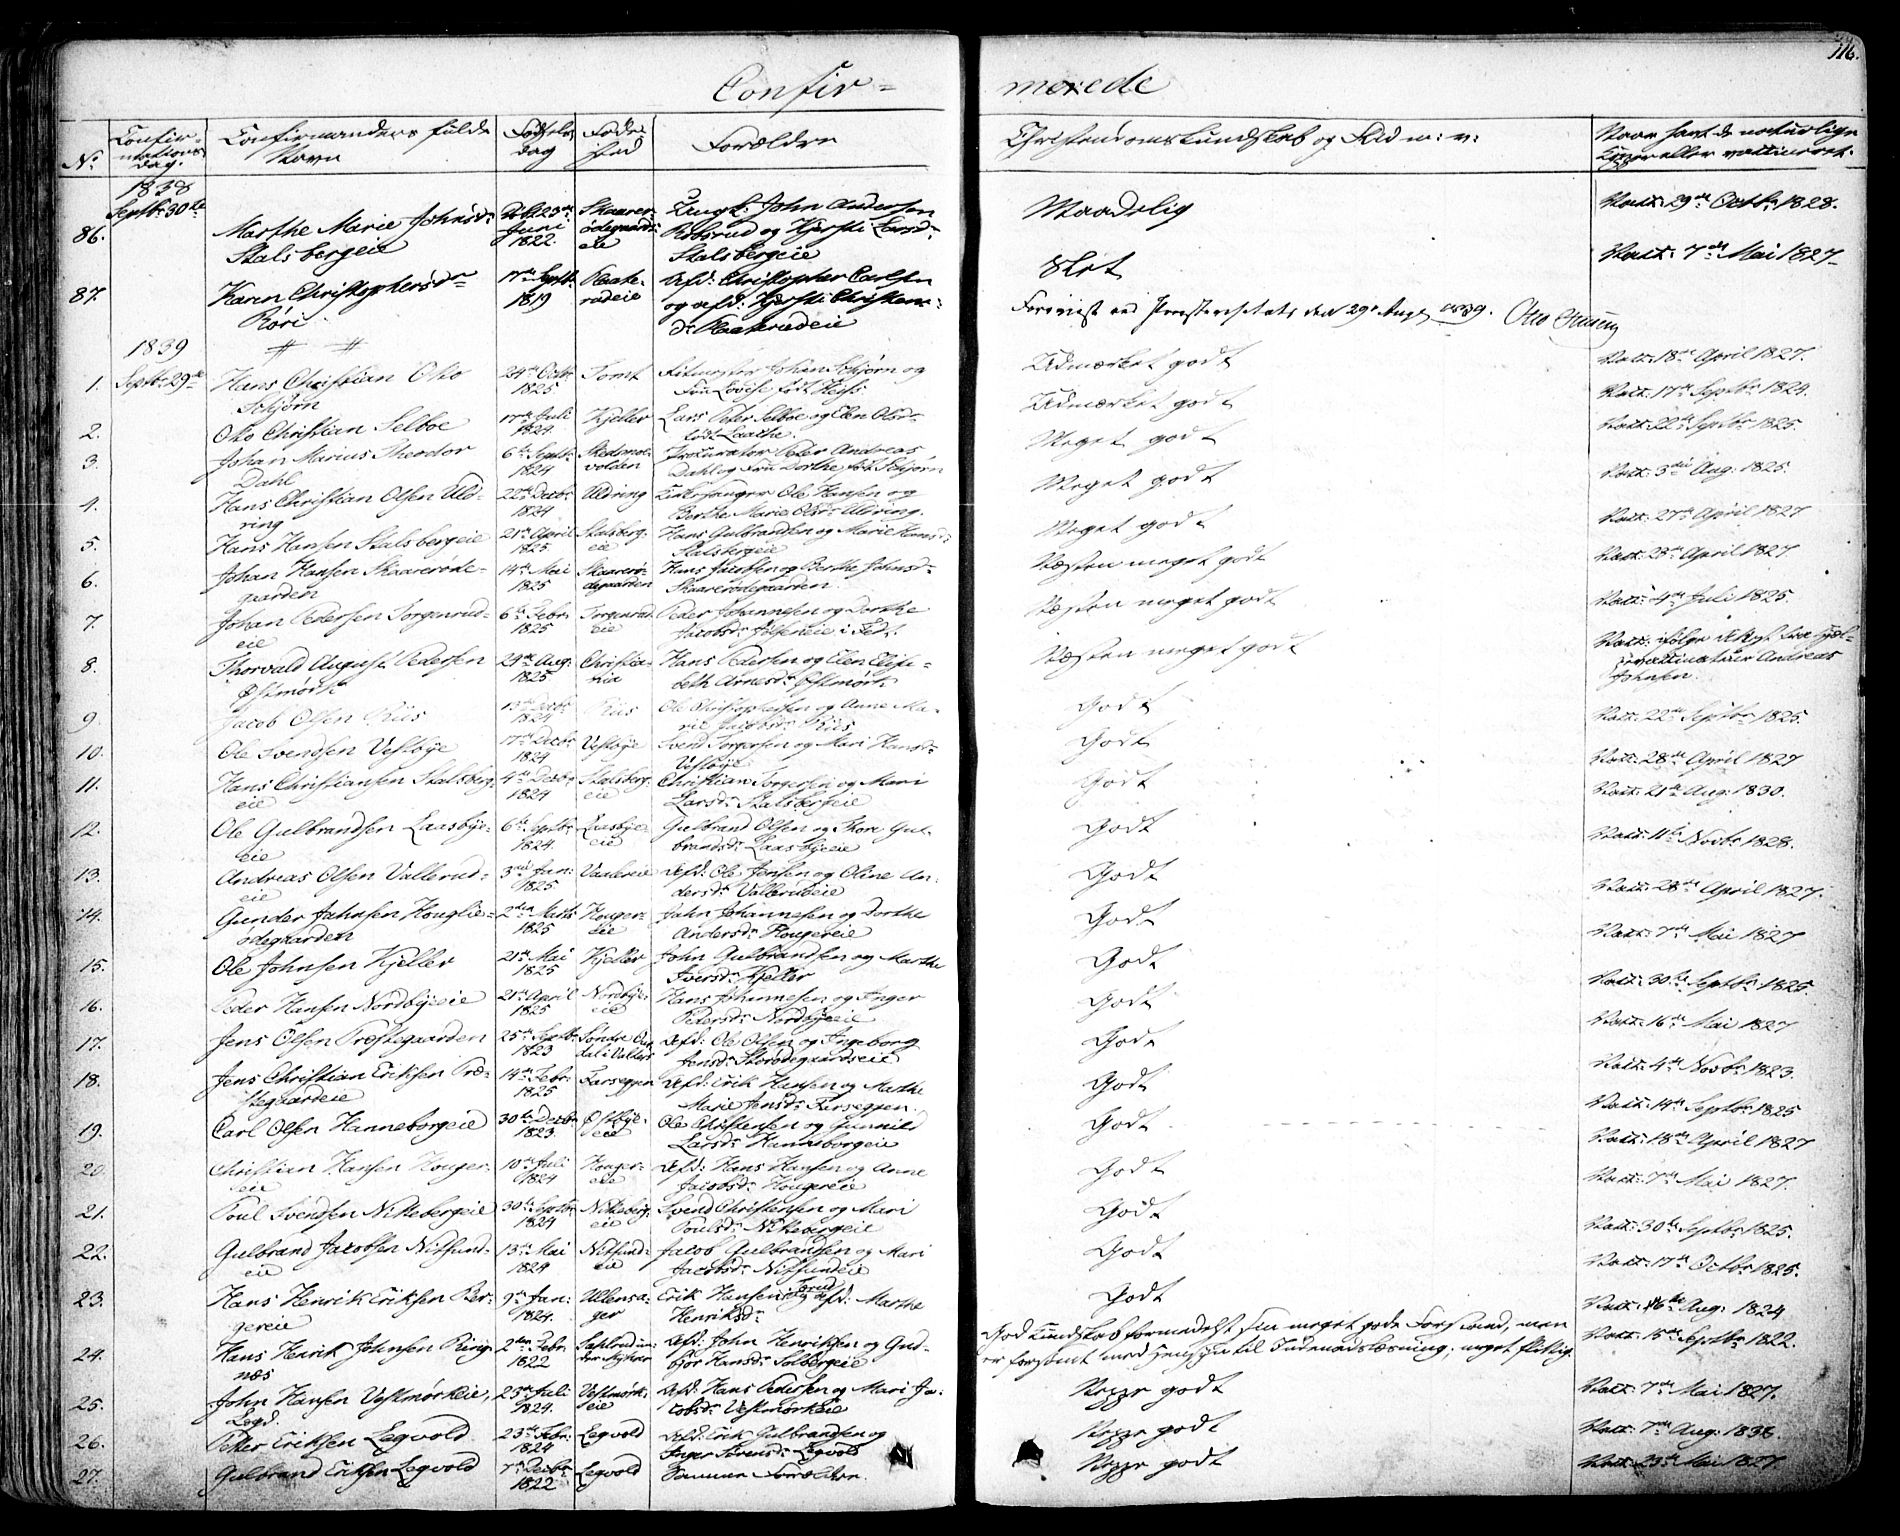 116.
Confir= merede
No
Confir-
mations
Dag.
Confirmandens fulde
Navn
Fødsels
dag
Føde
sted
Forældre
Christendomskundskab og Flid m: v:
Naar havt de naturlige
Kopper eller vaccineret.
1838
Septbr 30te
86. Marthe Marie Johnsdr
Stalsbergeie
Juni
1822
Skaarer-
ødegaards-
eie
John Andersen
Robsrud og Kjersti Larsdr
Stalsbergeie
Maadelig
Vacc: 29de Octbr 1828.
87. Karen Christophersdr
Røri
17de Septbr
1819
Afd: Christopher Carlsen
og afd: Kjersti Christens-
dr
Slet
Vacc: 7de Mai 1827
1839
1. Septbr 29de Hans Christian Otto
Schjørn
24de Octbr
1825
Tomt
Johan Schjørn og
Udmærket godt
Vacc: 18de April 1827.
2. Otto Christian Selboe
17de Juli
1824
Kjeller
Lars Peter Selboe og Elen
Udmærket godt
Vacc: 17de Septbr 1824.
3. Johan Marius Theodor
Dahl
6te Septbr
1824
Procurator Peter Andreas
Dahl og Fru Dorthe født Schjørn
Meget godt
Vacc: 22de Septbr 1825.
4. Hans Christian Olsen Uld-
ring
22de Decbr
1824
Uldring
Ole Hansen og
Berthe Marie Olsdr Uldring.
Meget godt
Vacc: 3die Aug: 1825.
5. Hans Hansen Stalsbergeie
21de April
1825
Stalsberg-
eie
Hans Gulbrandsen og Marie Hansdr
Stalsbergeie
Meget godt
Vacc: 27de April 1827
6. Johan Hansen Skaarerøde-
gaarden
14de Mai
1825
Skaarerø-
degaarden
Hans Jacobsen og Berthe Johnsdr
Skaarerødegaarden.
Næsten meget godt
Vacc: 28de April 1827
7. Johan Pedersen Sorgenrud-
eie
6te Febr:
1825
Sorgenrud
eie
Peder Johannesen og Dorthe
Jacobsdr
Næsten meget godt
Vacc: 4de Juli 1825.
8. Thorvald August Pedersen
Østmørk
29de Aug:
1825
Christia-
nia
Hans Pedersen og Elen Elise-
beth Arnesdr Østmørk
Næsten meget godt
Vacc: ifølge
Andreas
Johnsen.
9. Jacob Olsen Riis
13de Decbr
1824
Riis
Ole Christophersen og Anne Ma-
rie Jacobsdr Riis
Godt
Vacc: 22de Septbr 1825.
10. Ole Svendsen Vestbye
17de Decbr
1824
Vestbye
Svend Torgersen og Mari Hansdr
Vestbye
Godt
Vacc: 28de April 1827
11. Hans Christiansen Stalsberg-
eie
4de Decbr
1824
Stalsberg-
eie
Christian Torgersen og Mari
Larsdr Stalsbergeie
Godt
Vacc: 21de Aug: 1830.
12. Ole Gulbrandsen Laasbye-
eie
6te Septbr
1824
Laasbye-
eie
Gulbrand Olsen og Thore Gul-
brandsdr Laasbyeeie
Godt
Vacc: 11te Novbr 1828.
13. Andreas Olsen Vallerud-
eie
3die Jan:
1825
Vaalereie
Afd: Ole Jensen og Oline An-
dersdr Vallerudeie
Godt
Vacc: 28de April 1827.
14. Gunder Jahnsen Houglie-
ødegaarden
2den Marts
1825
Houger-
eie
Jahn Johannesen og Dorthe
Andersdr Hougereie
Godt
Vacc: 7de Mai 1827
15. Ole Johnsen Kjeller
21de Mai
1825
Kjeller
John Gulbrandsen og Marthe
Iversdr Kjeller
Godt
Vacc: 30te Septbr 1825.
16. Peder Hansen Nordbyeeie
21de April
1825
Nordbye-
eie
Hans Johannesen og Inger
Pedersdr Nordbyeeie
Godt
Vacc: 16de Mai 1827
17. Jens Olsen Præstegaarden
25de Septbr
1823
Søndre
Afd: Ole Olsen og Ingeborg
Jensdr
Godt
Vacc: 4de Novbr 1823.
18. Jens Christian Eriksen Præ-
stegaardeie
14de Febr:
1825
Farseggen
Afd: Erik Hansen og Marthe
Marie Jensdr Farseggen.
Godt
Vacc: 14de Septbr 1825
19. Carl Olsen Hanneborgeie
30te Decbr
1823.
Østbye-
eie
Ole Christensen og Gunnild
Larsdr Hanneborgeie
Godt
Vacc: 18de April 1827
20. Christian Hansen Houger-
eie
10de Juli
1824
Houger-
eie
Afd: Hans Hansen og Anne
Jacobsdr Hougereie
Godt
Vacc: 7de Mai 1827.
21. Poul Svendsen Nittebergeie
30te Septbr
1824
Nitteberg-
eie
Svend Christensen og Mari
Poulsdr Nittebergeie
Godt
Vacc: 30te Septbr 1825.
22. Gulbrand Jacobsen Nitsund-
eie
13de Mai
1824
Nitsund-
eie
Jacob Gulbrandsen og Mari
Jacobsdr Nitsundeie
Godt
Vacc: 17de Octbr 1825.
23. Hans Henrik Eriksen Ber-
gereie
9de Jan:
1824.
Ullensa-
ger
Erik Hansen og afd: Marthe
Henriksdr
Godt
Vacc: 16de Aug: 1824
24. Hans Henrik Johnsen Ring-
næs
2den Febr:
1822
Afd: John Henriksen og Gud-
bjør Hansdr Solbergeie
God Kundskab formedelst sin meget gode Forstand, men
er forsømt med Hensyn til Indenadslæsning; meget flittig.
Vacc: 15de Septbr 1822.
25. John Hansen Vestmørkeie,
Legd.
23de Juli
1824.
Vestmørk-
eie
Afd: Hans Pedersen og Mari Ja-
cobsdr Vestmørkeie
Neppe godt
Vacc: 7de Mai 1827.
26. Peter Eriksen Legvold
23de Febr:
1824
Legvold
Afd: Erik Gulbrandsen og
Inger Svensdr Legvold
Neppe godt
Vacc: 7de Aug: 1836.
27. Gulbrand Eriksen Legvold
7de Decbr
1822
Legvold
Samme Forældre.
Neppe godt
Vacc: 23de Mai 1827.